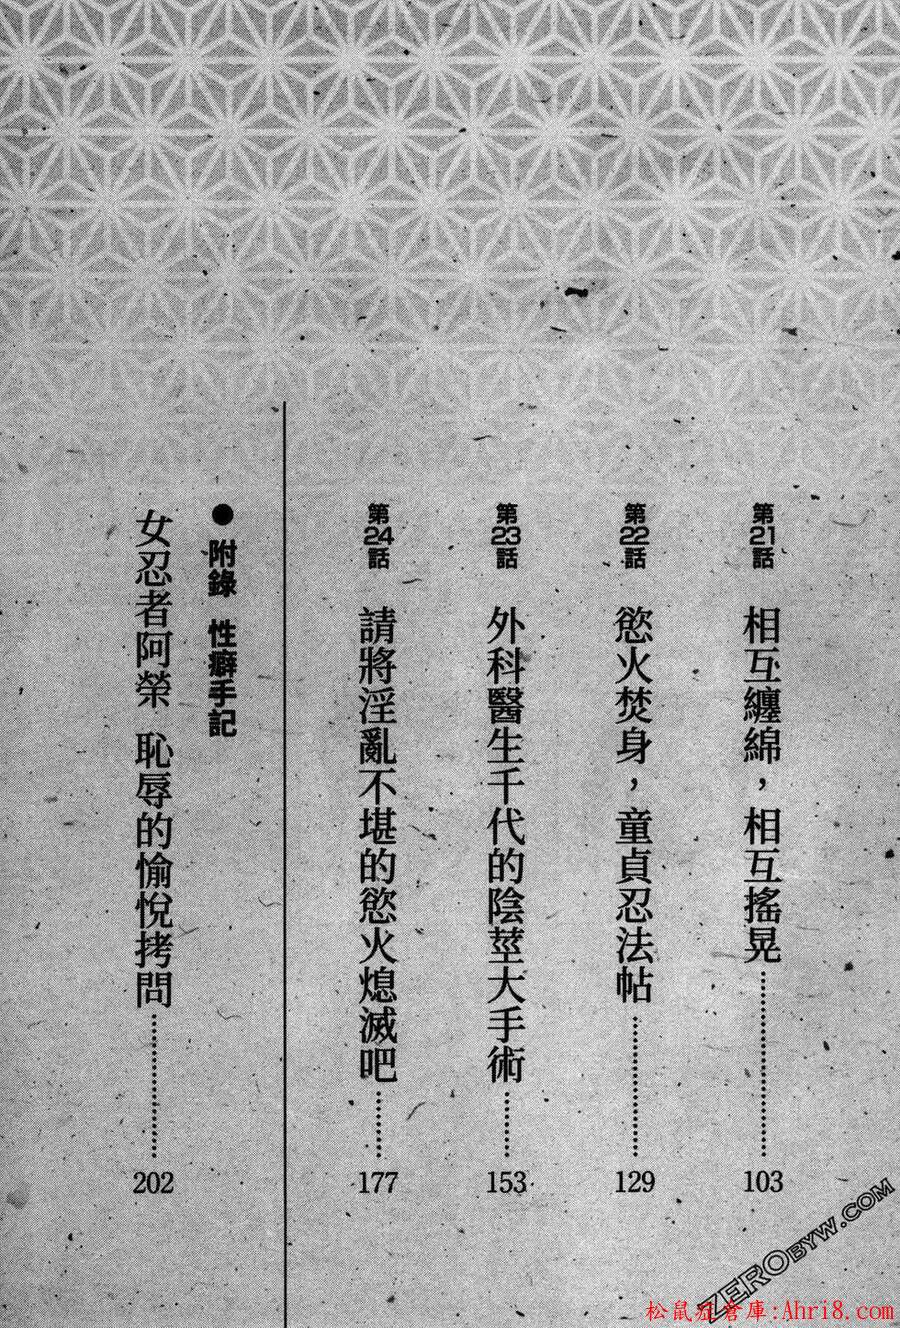 第21話 相互纏綿，相互搖晃 103
第22話 慾火焚身，童貞忍法帖 129
第23話 外科醫生千代的陰莖大手術 153
第24話 請將淫亂不堪的慾火熄滅吧 177
● 附錄 性癖手記
女忍者阿榮 恥辱的愉悅拷問 202
ZEROBYW.COM
松鼠症倉庫:Ahri8.com